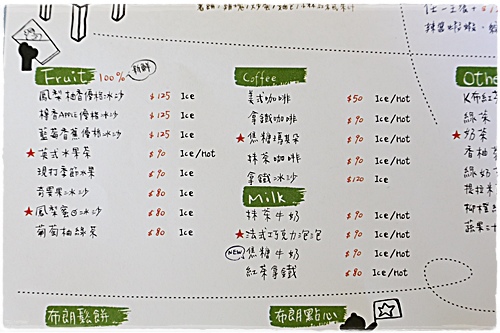 Fruit 100% 新鮮
鳳梨柚香優格冰沙 $125 Ice
檸香APPLE優格冰沙 $125 Ice
藍莓香蕉優格冰沙 $125 Ice
★英式水果茶 $90 Ice/Hot
現打季節冰果 $90 Ice
奇異果冰沙 $80 Ice
★鳳梨蜜冰沙 $80 Ice
葡萄柚綠茶 $80 Ice
Coffee
美式咖啡 $50 Ice/Hot
拿鐵咖啡 $90 Ice/Hot
★焦糖瑪奇朵 $90 Ice/Hot
抹茶咖啡 $90 Ice/Hot
拿鐵冰沙 $120 Ice
Milk
抹茶牛奶 $90 Ice/Hot
★法式巧克力泡泡 $90 Ice/Hot
NEW 焦糖牛奶 $90 Ice/Hot
紅茶拿鐵 $80 Ice/Hot
任一主後+
Othe
K布紅
綠茶
★奶茶
香柚
綠奶
提拉米
柳橙
蔬果二十
布朗鬆餅
布朗點心